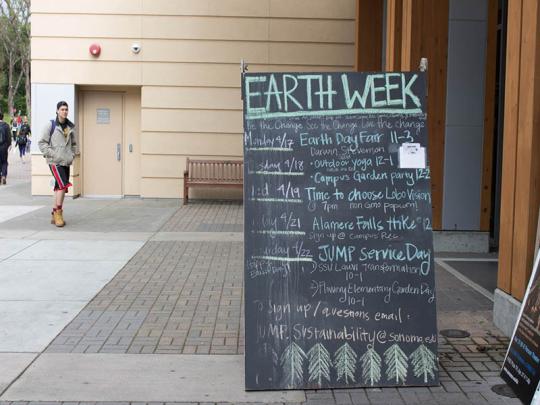 EARTH WEEK
Be the Change See the Change Love the change
Monday 4/17 Earth Day Fair 11-3
Darwin Stevenson
sday 4/18 • outdoor yoga 12-1
• Campus Garden party 12-2
d 4/19 Time to choose Lobo Vision
7pm non GMO popcorn!
4/21 Alamere Falls Hike 12
Sign up @ Campus Rec
urday 4/22 JUMP Service Day
1) SSU Lawn Transformation
10-1
2) Elementary Garden Day
10-1
Sign up / questions email:
JUMP Sustainability@sonoma.edu